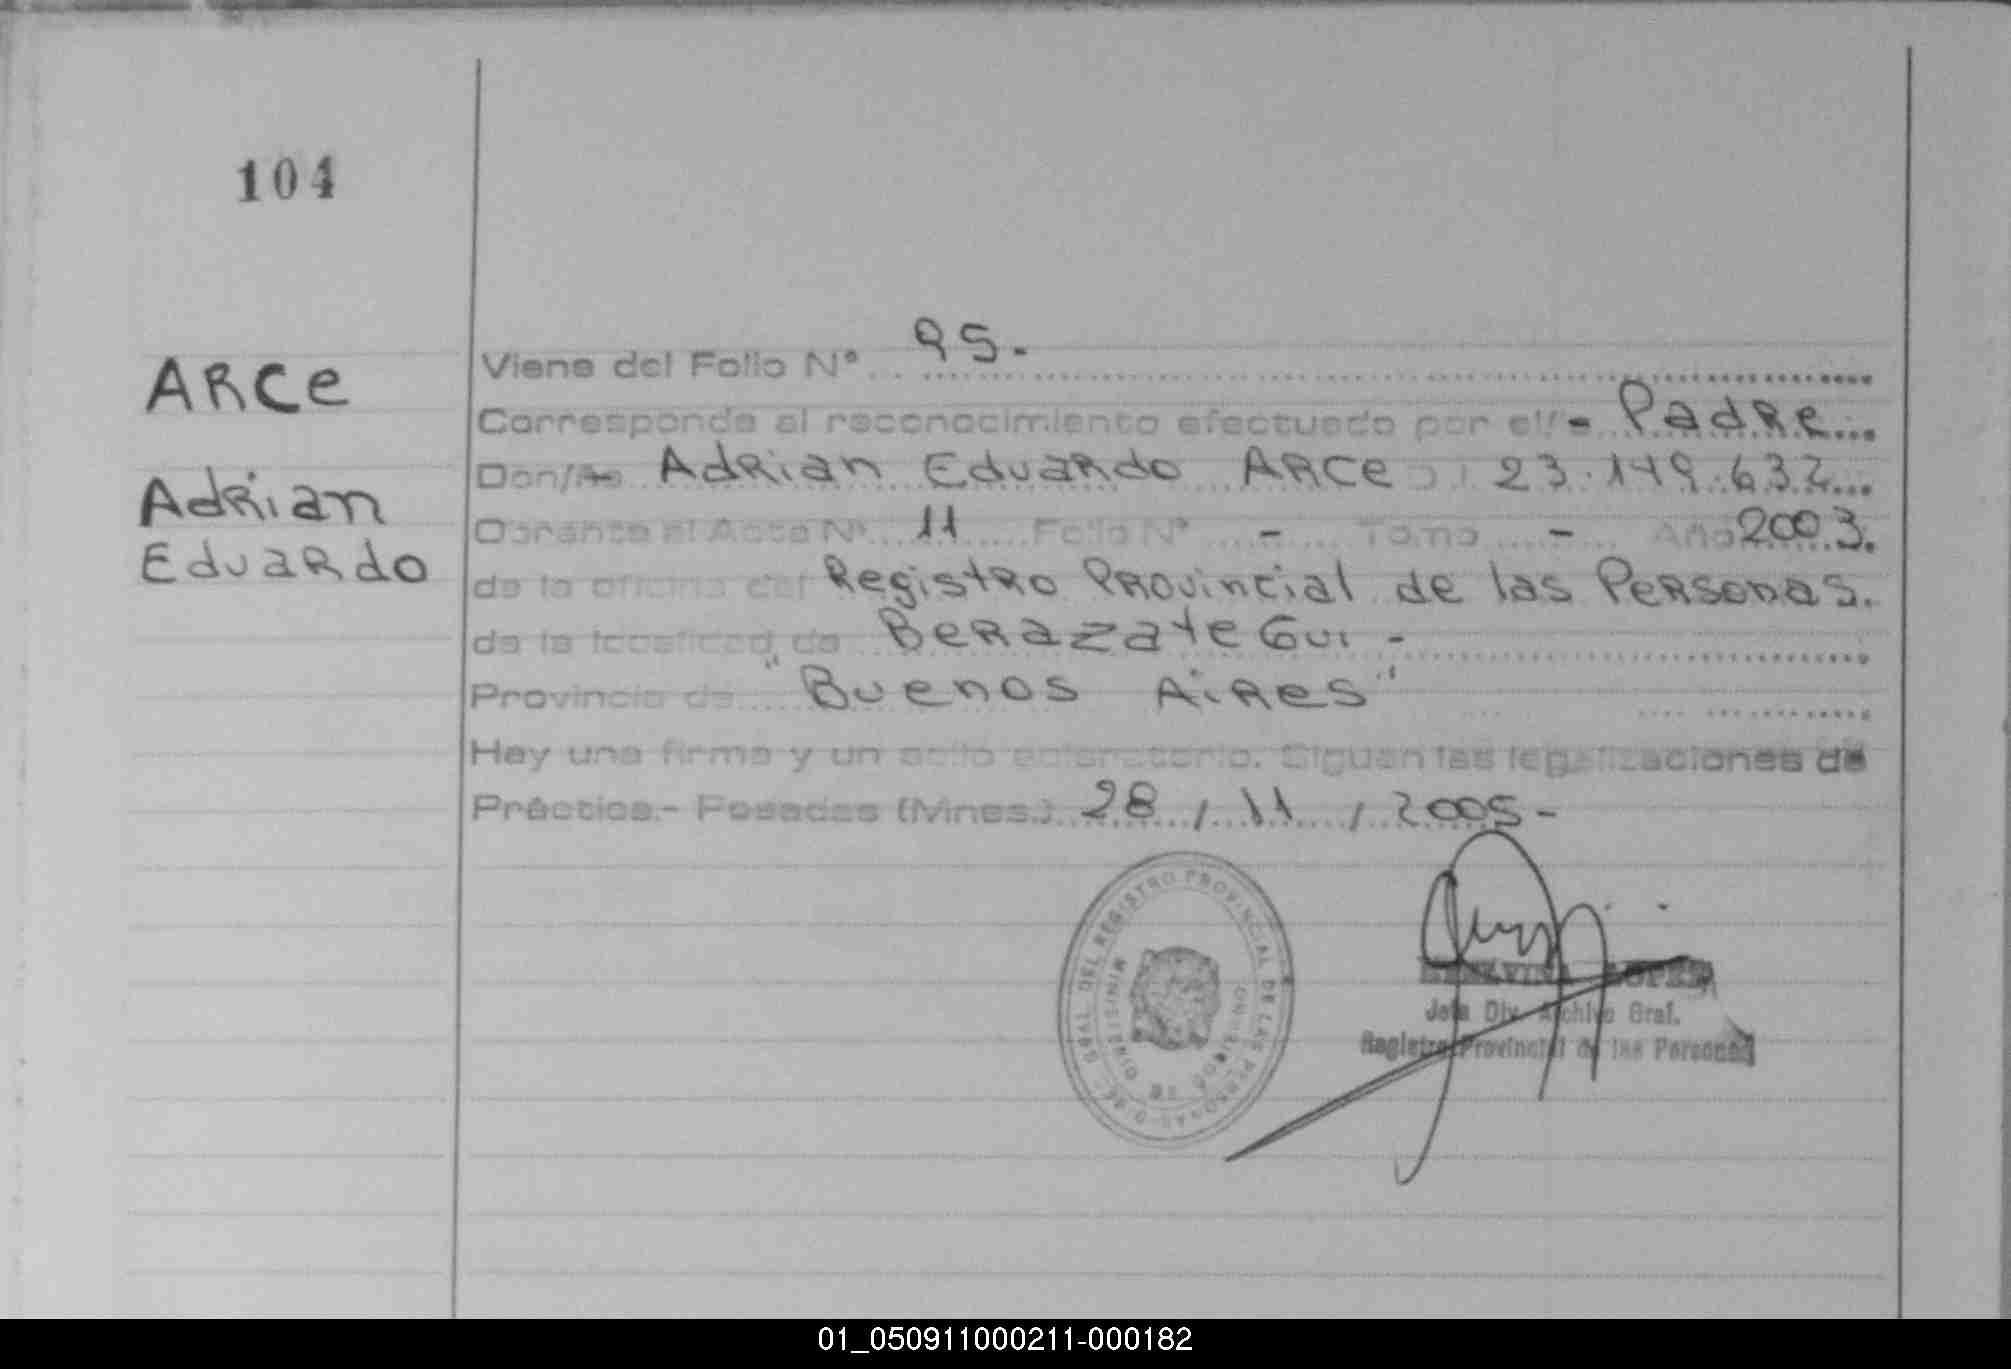 104
ARCE
Adrian
Eduardo
Viene del Folio Nº 95.-
Corresponde al reconocimiento efectuado por el/- Padre
Don/ña Adrian Eduardo ARCE 23.149.632
Obrante al Acta Nº 11 Folio Nº - Tomo - Año 2003.
de la oficina del Registro Provincial de las Personas.
de la localidad de Berazategui -
Provincia de "Buenos Aires"
Hay una firma y un sello aclaratorio. Siguen las legalizaciones de
Práctica.- Posadas (Mnes.) 28 / 11 / 2005 -
DIREC. GRAL. DEL REGISTRO PROVINCIAL DE LAS PERSONAS
MINISTERIO DE GOBIERNO
LOPEZ
Jefa Div. Archivo Gral.
Registro Provincial de las Personas
01_050911000211-000182